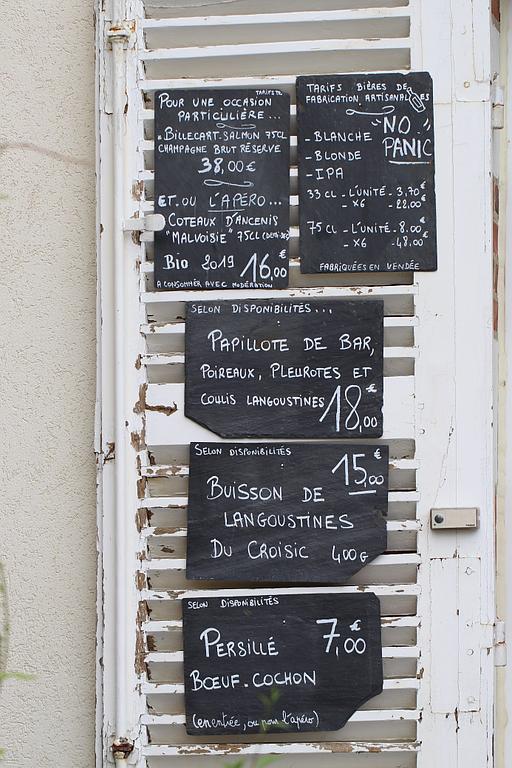 TARIFS TTC
POUR UNE OCCASION
PARTICULIÈRE...
BILLECART-SALMON 75CL
CHAMPAGNE BRUT RÉSERVE
38,00€
ET.OU L'APÉRO...
COTEAUX D'ANCENIS
"MALVOISIE" 75CL (DEMI-SEC)
BIO 2019 16,00€
A CONSOMMER AVEC MODÉRATION
TARIFS BIÈRES DE
FABRICATION ARTISANALES
"NO PANIC"
- BLANCHE
- BLONDE
- IPA
33 CL - L'UNITÉ - 3,70€
- X6 - 22,00€
75 CL - L'UNITÉ - 8.00€
- X6 - 48,00€
FABRIQUÉES EN VENDÉE
SELON DISPONIBILITÉS...
PAPILLOTE DE BAR,
POIREAUX, PLEUROTES ET
COULIS LANGOUSTINES 18,00€
SELON DISPONIBILITÉS
15,00€
BUISSON DE
LANGOUSTINES
DU CROISIC 400G
SELON DISPONIBILITÉS
PERSILLÉ 7,00€
BŒUF-COCHON
(en entrée, ou pour l'apéro)